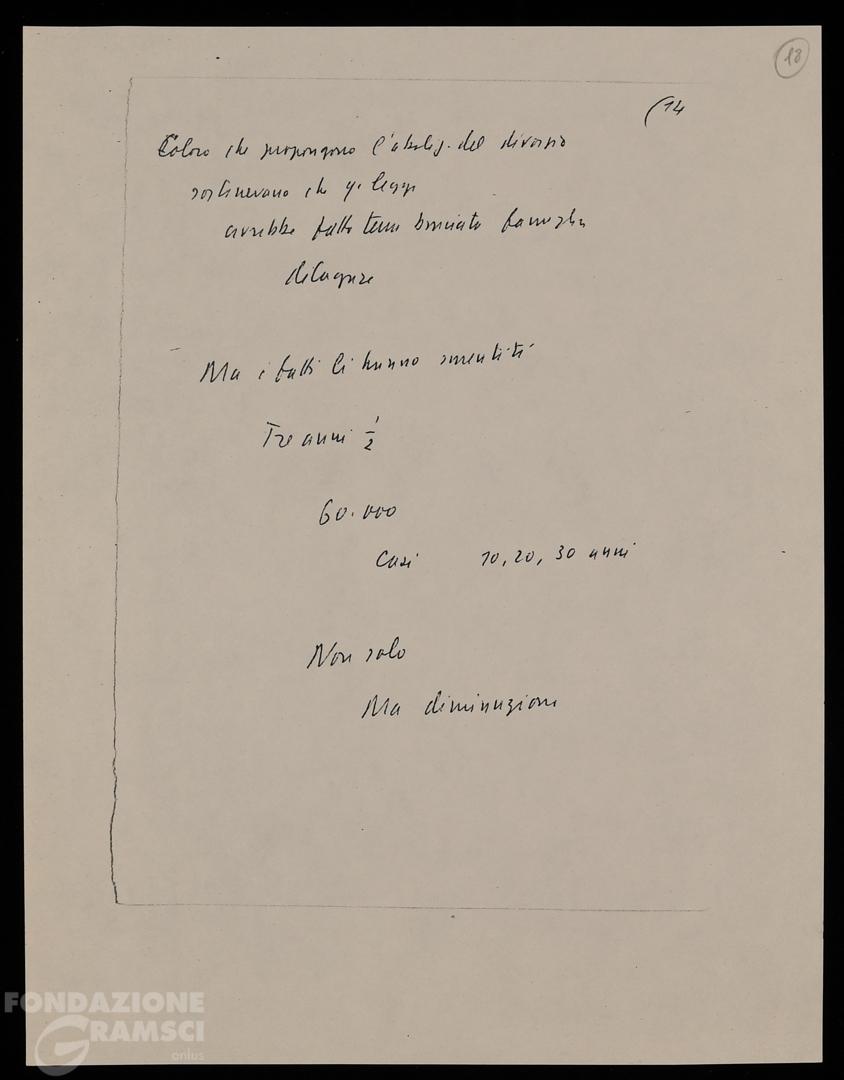 18
(14
Coloro che propongono l'aboliz. del divorzio
sostenevano che q. legge
avrebbe fatto terra bruciata famiglia
dilagare
Ma i fatti li hanno smentiti
Tre anni 1/2
60.000
Casi 10, 20, 30 anni
Non solo
Ma diminuzione
FONDAZIONE
GRAMSCI
onlus